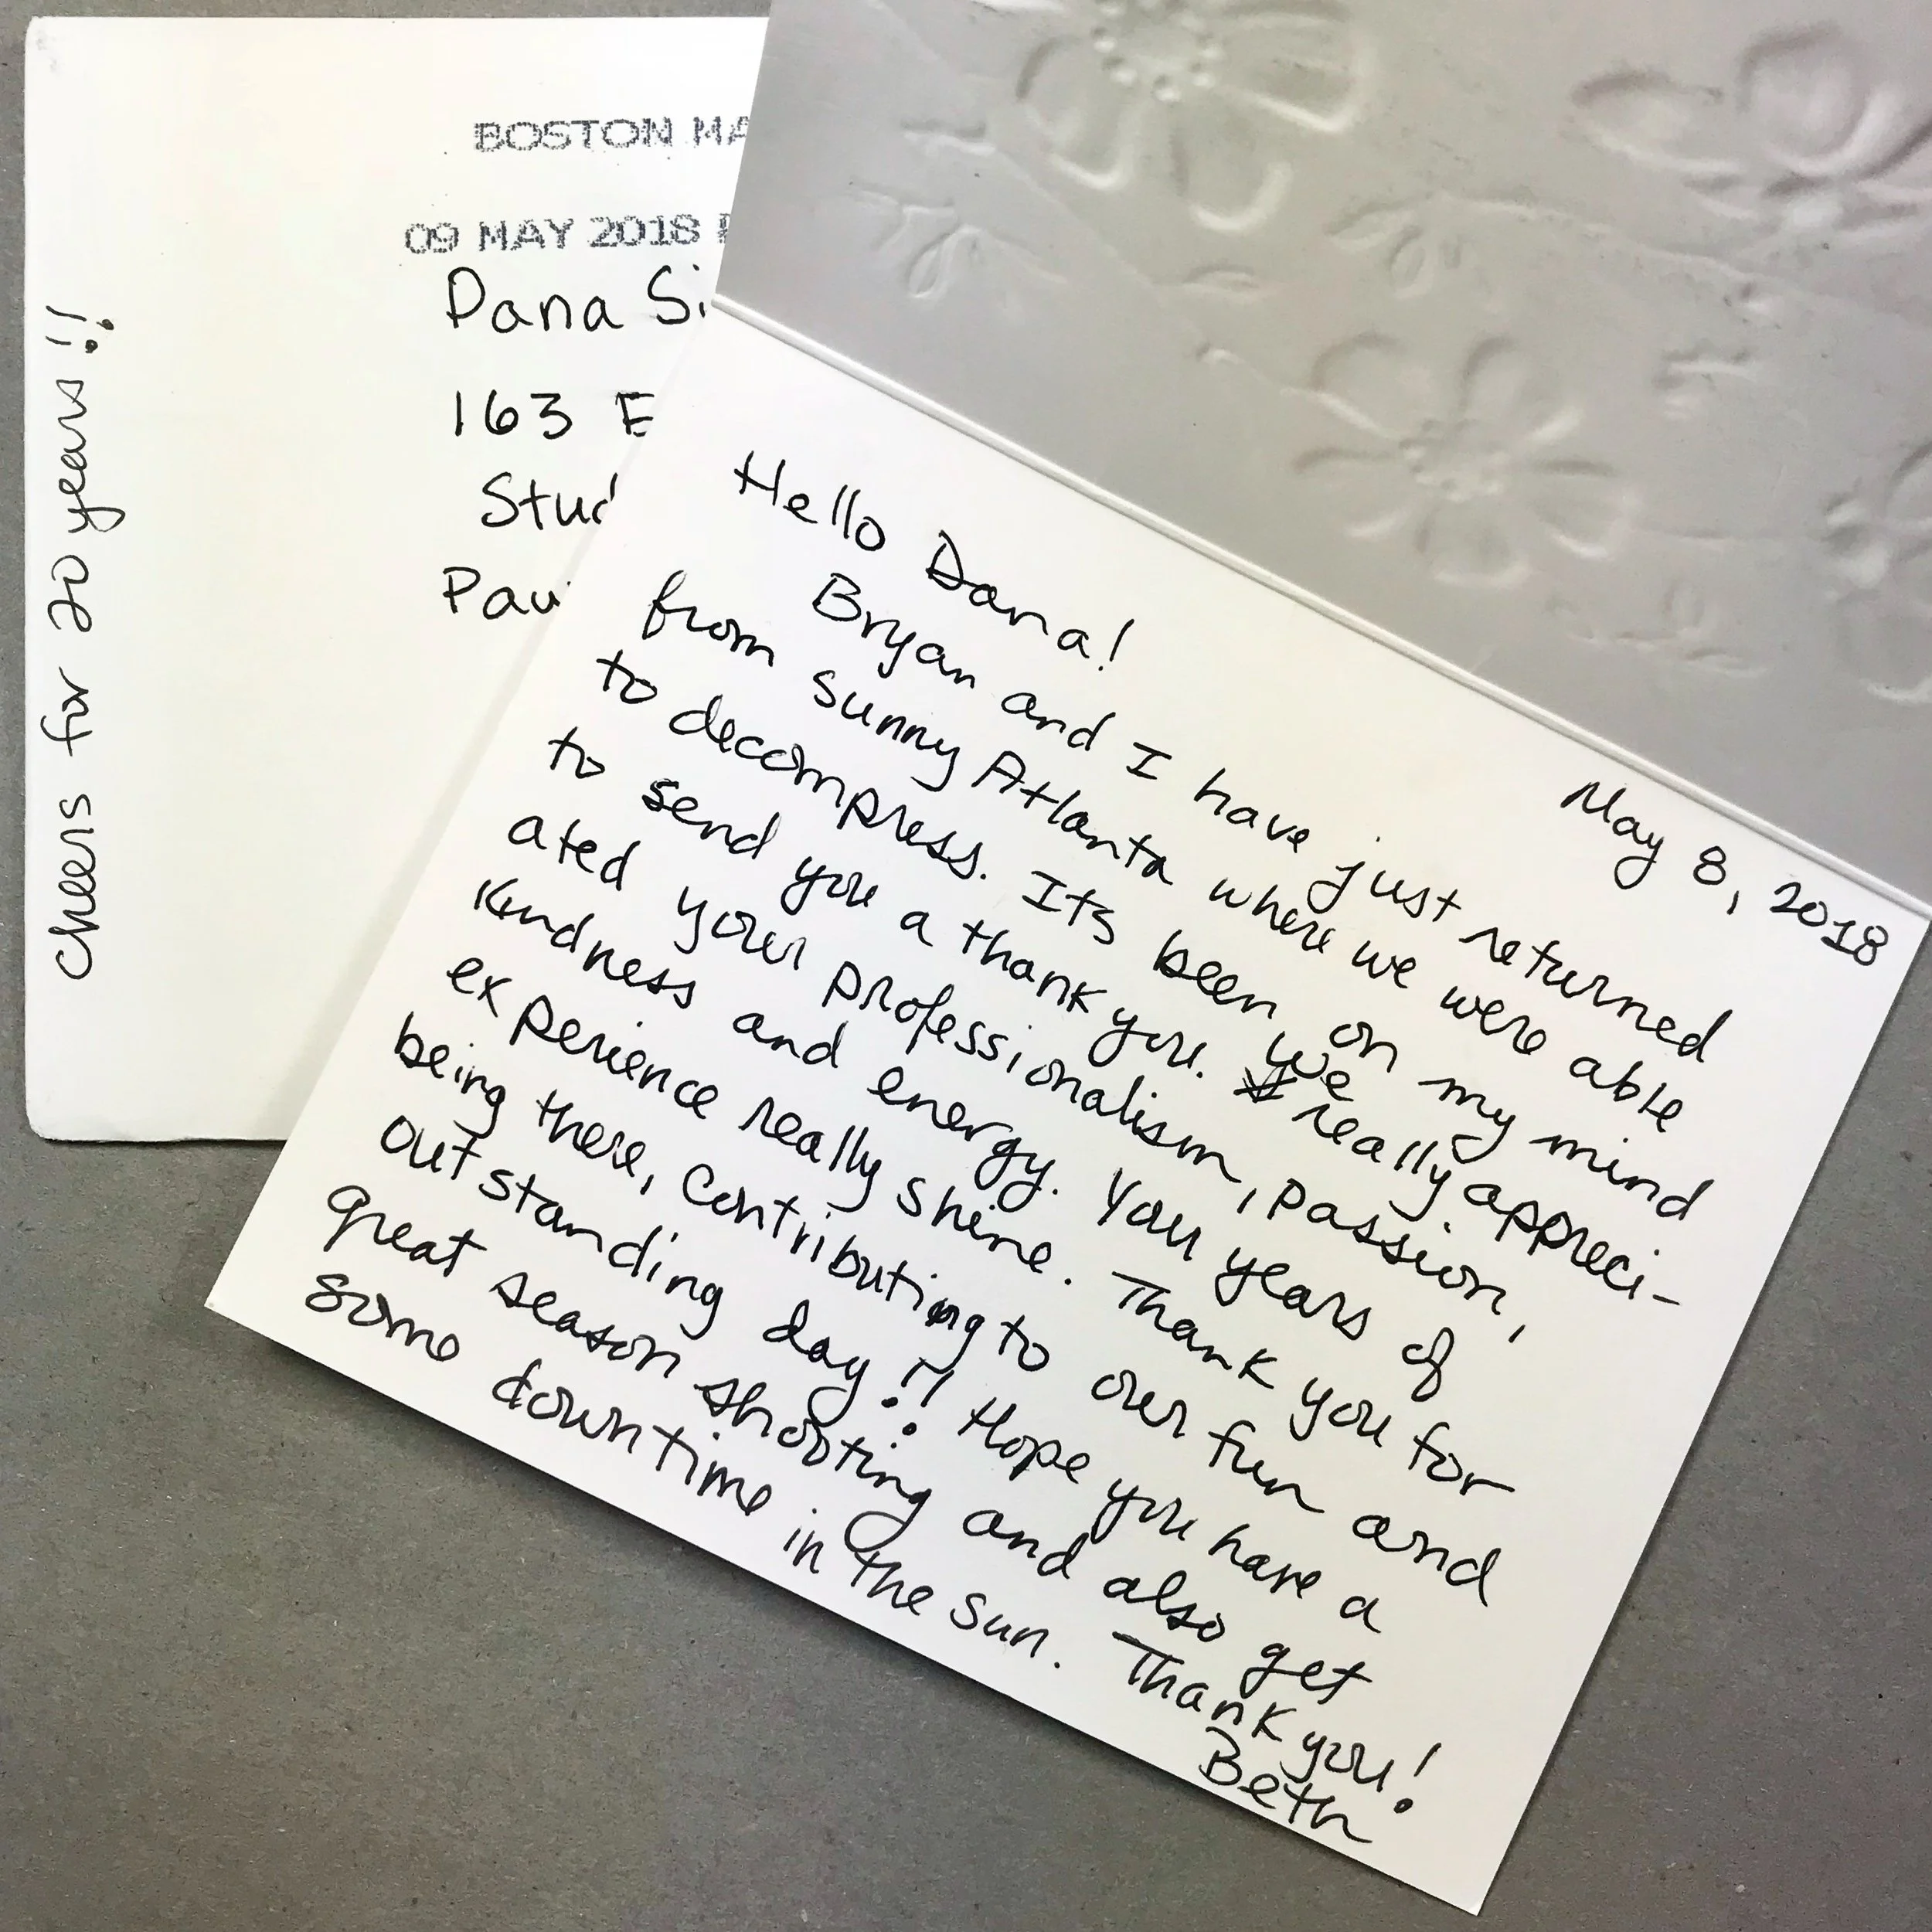 BOSTON MA
09 MAY 2018
Dana Si
163 E
Stud
Pau
Cheers for 20 years!!
May 8, 2018
Hello Dana!
Bryan and I have just returned
from sunny Atlanta where we were able
to decompress. Its been on my mind
to send you a thank you. We really appreci-
ated your professionalism, passion,
Kindness and energy. Your years of
experience really shine. Thank you for
being there, contributing to our fun and
outstanding day!! Hope you have a
great season shooting and also get
some downtime in the sun. Thank you!
Beth